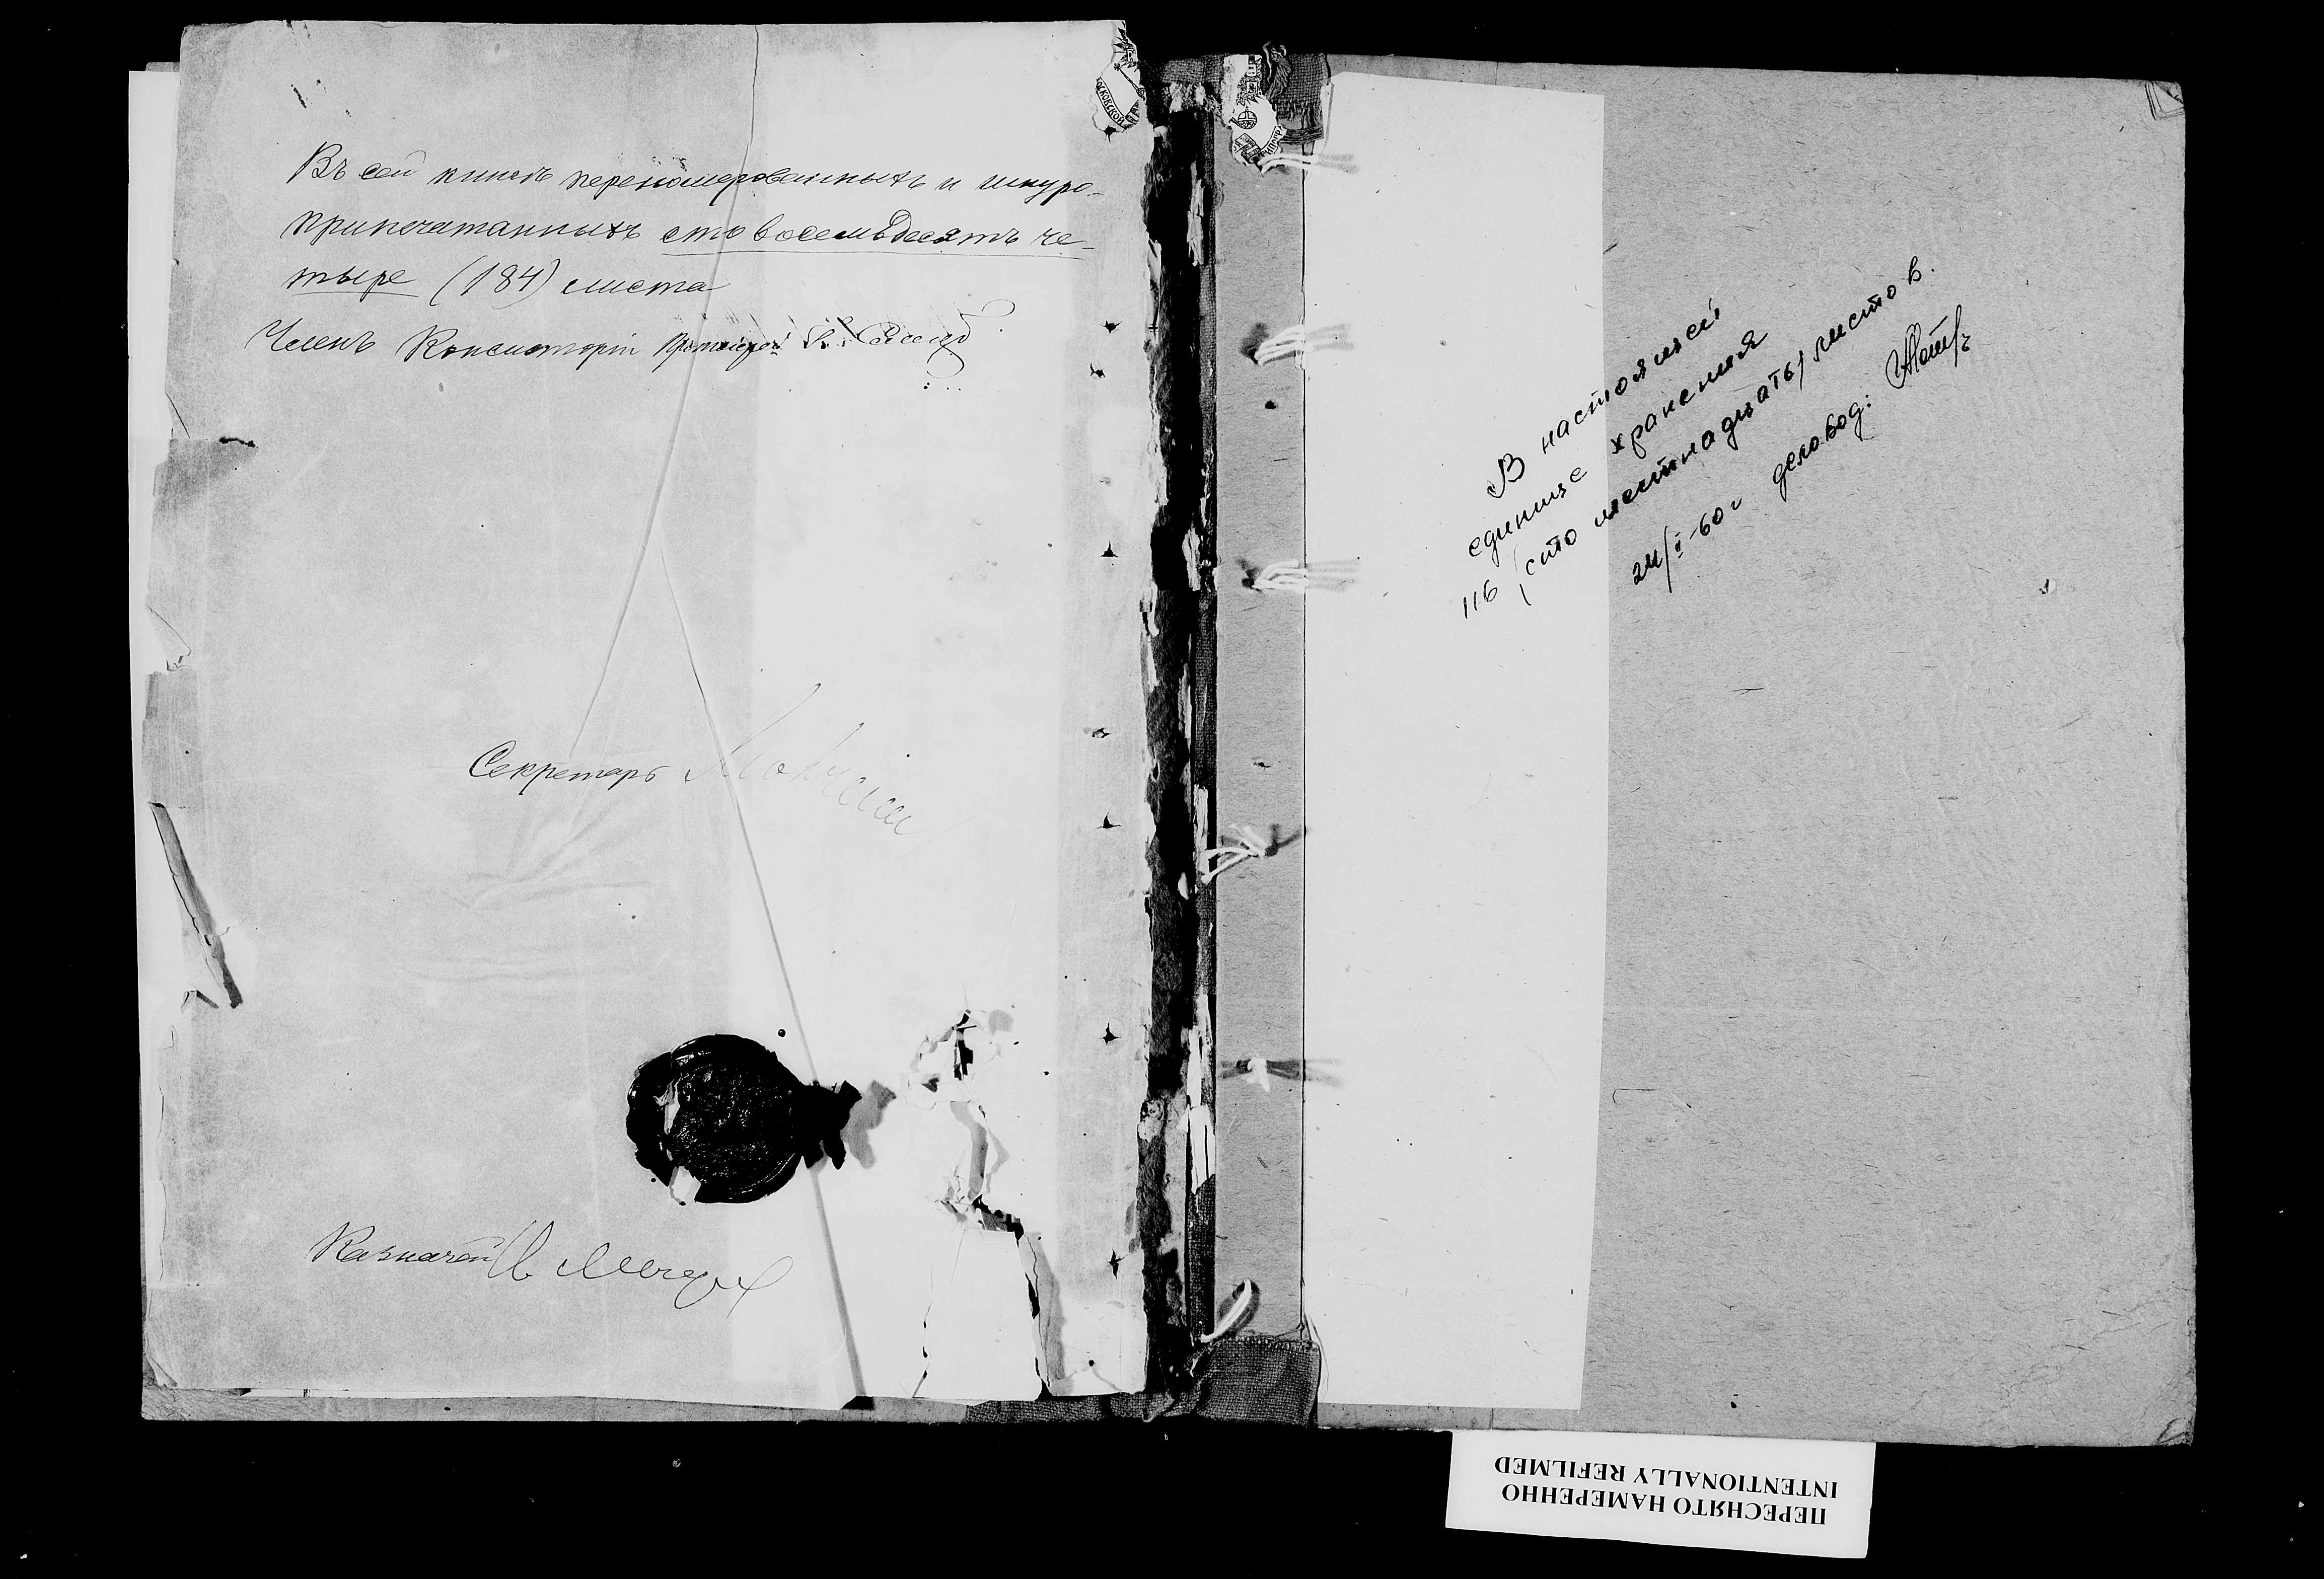 Въ сей книгѣ перенумерованныхъ и шнуро-
припечатанныхъ сто восемьдесятъ че-
тыре (184) листа
Членъ Консисторіи Протоіерей
Секретарь
Казначей
В настоящей
единице хранения
116 (сто шестнадцать) листов.
24/II-60 г деловод:
ПЕРЕСНЯТО НАМЕРЕННО
INTENTIONALLY REFILMED